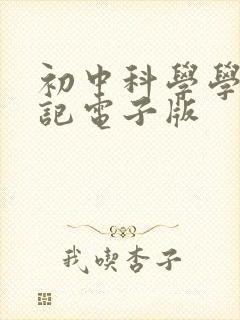 初中科學學
記電子版
我喫杏子